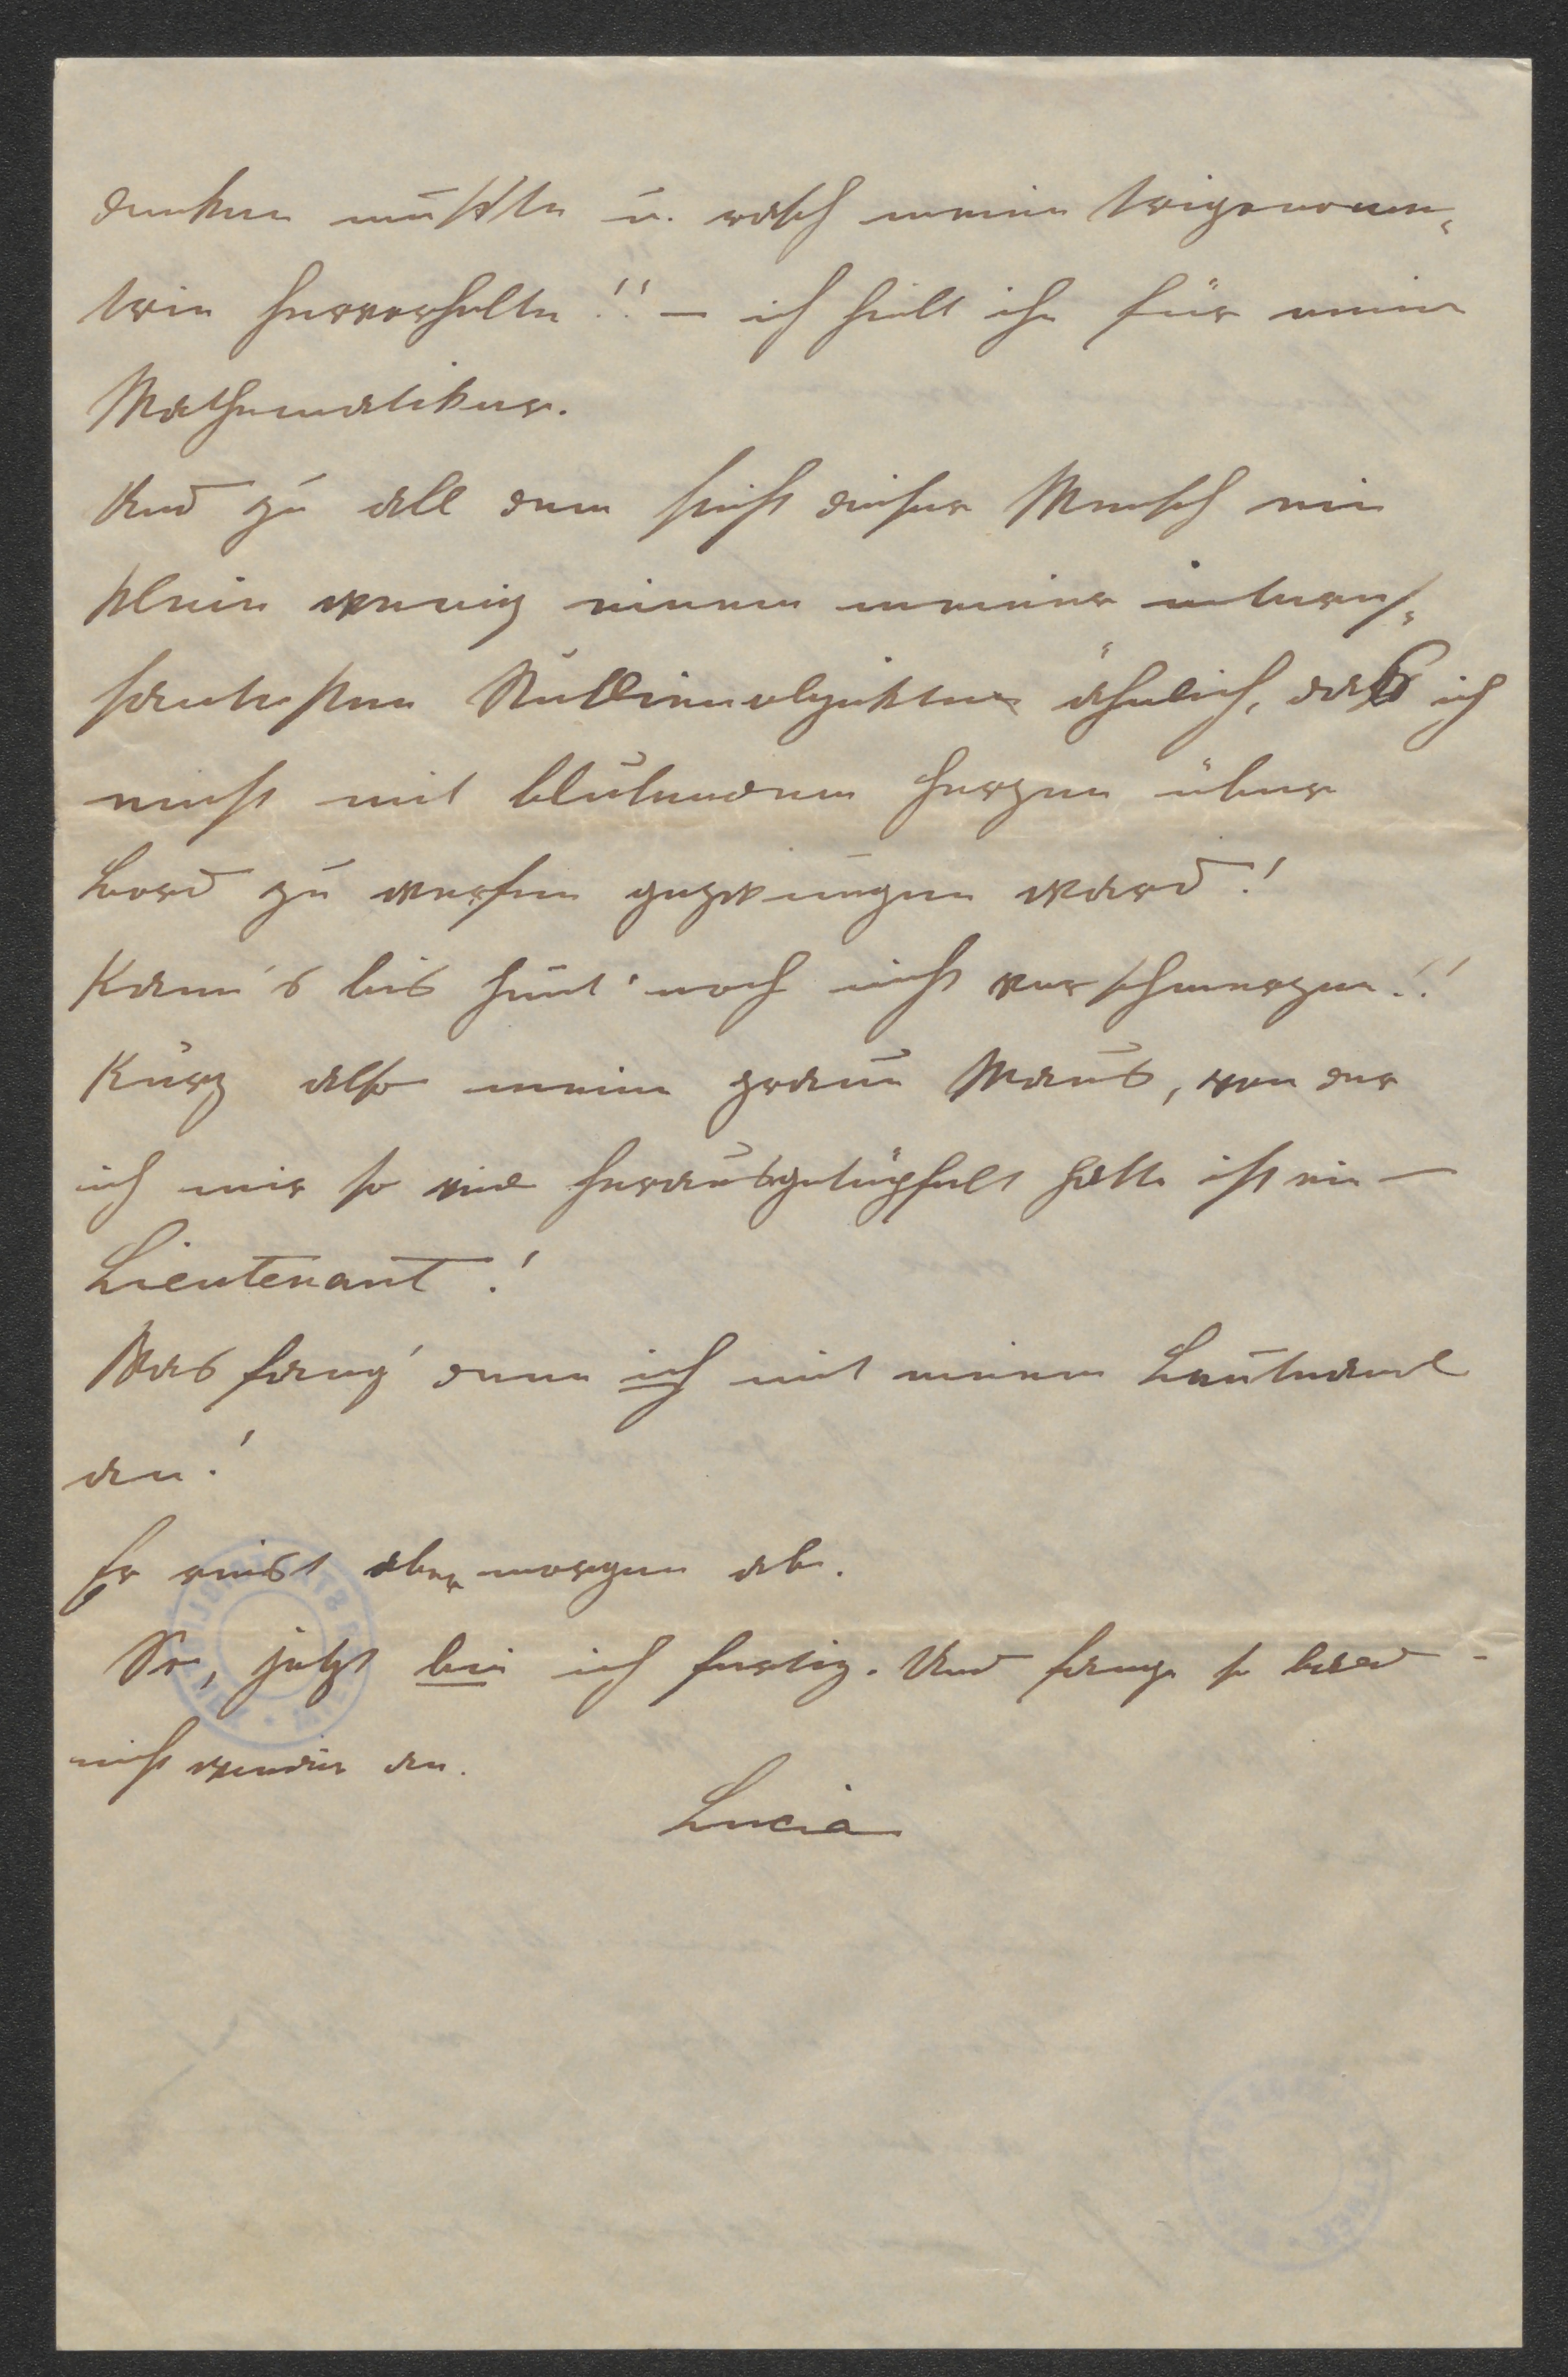 denken mußte u. rasch meine Trigonome-
trie hervorholte!! – ich hielt ihn für einen
Mathematiker.
Und zu all dem sieht dieser Mensch ein
klein wenig einem meiner interes-
santesten Studienobjekten ähnlich, daß ich
einst mit blutendem Herzen über
Bord zu werfen gezwungen ward!
Kann's bis heut' noch nicht verschmerzen!!
Kurz also meine graue Maus, von der
ich mir so viel herausgetüpfelt hatte ist ein –
Lieutenant!
Was fang' denn ich mit einem Leutnant
an!
Er reist übermorgen ab.
So, jetzt bin ich fertig. Und fange so bald
nicht wieder an.
Lucia